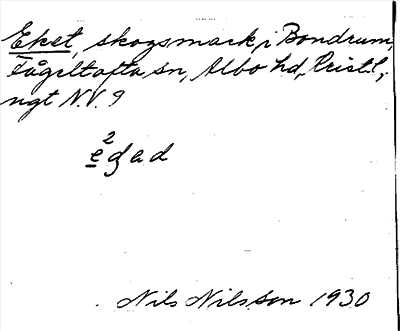 Eket, skogsmark i Bondrum,
Fågeltofta sn, Albo hd, Krist.l.,
ngt N.V. 9
e²gad
Nils Nilsson 1930